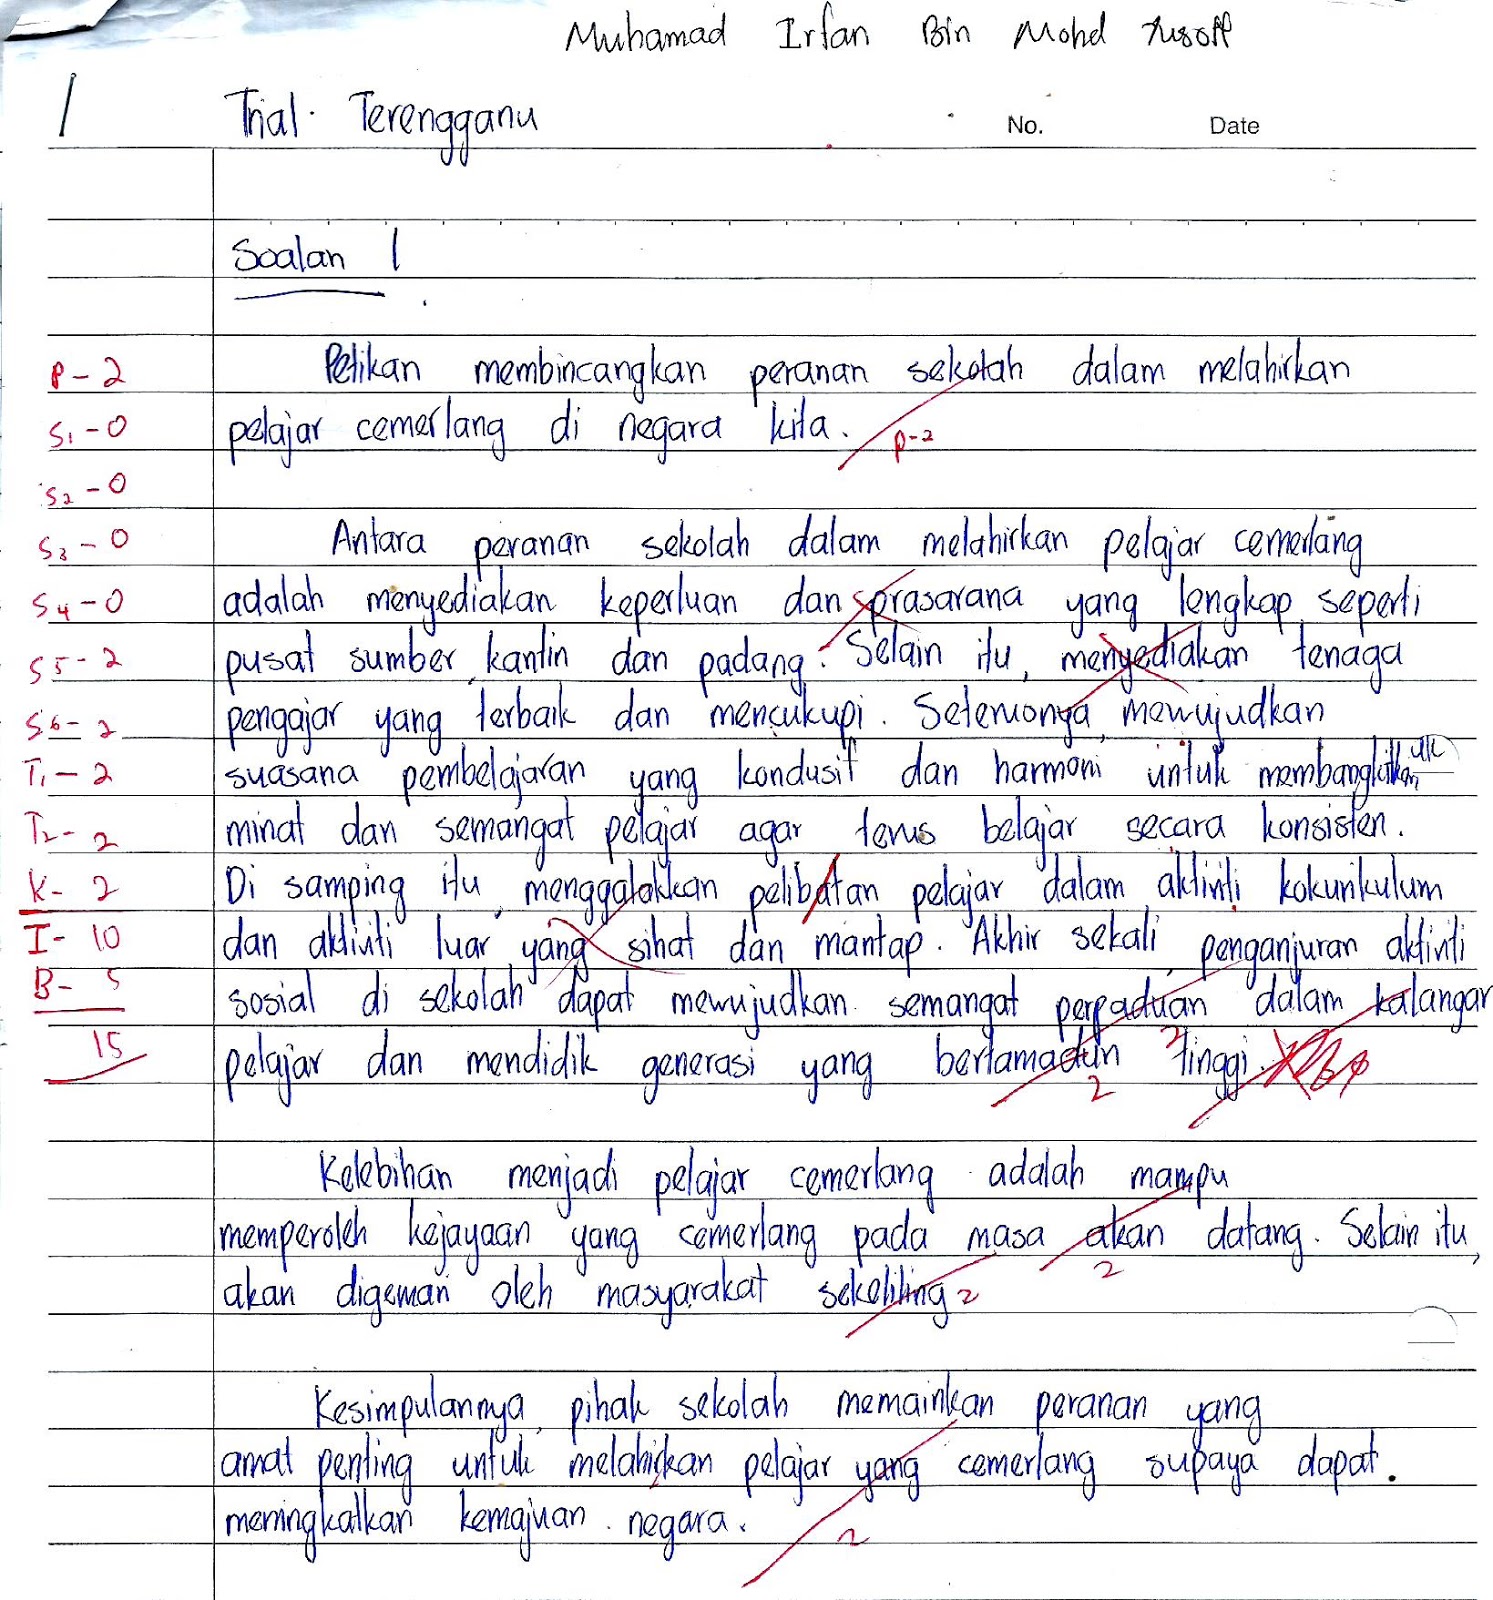 Muhamad Irfan Bin Mohd Yusoff
1 Trial. Terengganu No. Date
Soalan 1
P-2 Petikan membincangkan peranan sekolah dalam melahirkan
S1-0 pelajar cemerlang di negara kita. P-2
S2-0
S3-0 Antara peranan sekolah dalam melahirkan pelajar cemerlang
S4-0 adalah menyediakan keperluan dan prasarana yang lengkap seperti
S5-2 pusat sumber, kantin dan padang. Selain itu, menyediakan tenaga
S6-2 pengajar yang terbaik dan mencukupi. Seterusnya, mewujudkan
T1-2 suasana pembelajaran yang kondusif dan harmoni untuk membangkitkan
T2-2 minat dan semangat pelajar agar terus belajar secara konsisten.
K-2 Di samping itu, menggalakkan pelibatan pelajar dalam aktiviti kokurikulum
I-10 dan aktiviti luar yang sihat dan mantap. Akhir sekali, penganjuran aktiviti
B-5 sosial di sekolah dapat mewujudkan semangat perpaduan dalam kalangan
15 pelajar dan mendidik generasi yang bertamadun 2 tinggi.
2
Kelebihan menjadi pelajar cemerlang adalah mampu
memperoleh kejayaan yang cemerlang pada masa akan datang. Selain itu,
2
akan digemari oleh masyarakat sekeliling 2
Kesimpulannya, pihak sekolah memainkan peranan yang
amat penting untuk melahirkan pelajar yang cemerlang supaya dapat.
meningkatkan kemajuan negara.
2